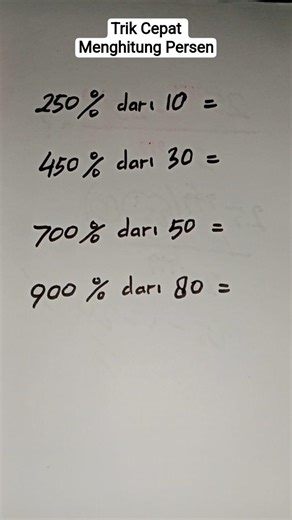 Trik Cepat
Menghitung Persen
250% dari 10 =
450% dari 30 =
700% dari 50 =
900% dari 80 =